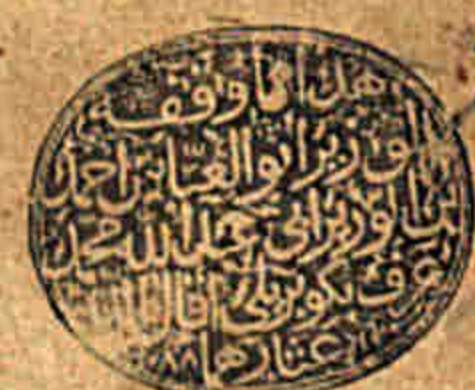 هذا ما وقفه
الوزير ابو العباس احمد
ابن الوزير ابي عبد الله محمد
عرف بكوبريلي اقال الله
عثارهما